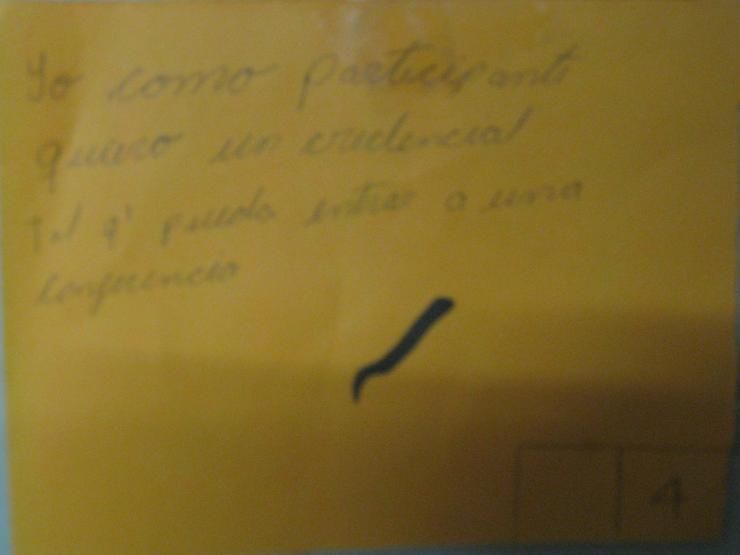 Yo como participante
quiero un credencial
tal q' pueda entrar a una
conferencia
4